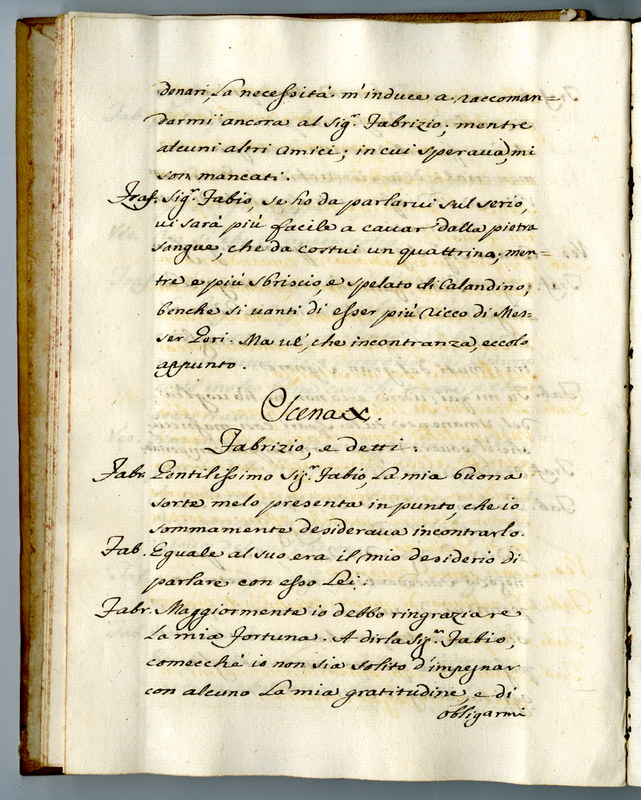 denari, La necessità m'induce a raccoman=
darmi ancora al Sig.r Fabrizio, mentre
alcuni altri amici, in cui sperava, mi
son mancati.
Traf. Sig.r Fabio, se ho da parlarvi sul serio,
vi sarà più facile a cavar dalla pietra
sangue, che da costui un quattrino, men=
tre e più sbriscio, e spelato di Calandino;
benche si vanti di esser più ricco di Mes=
ser Peri. Ma ve', che incontranza, eccolo
appunto.
Scena X.
Fabrizio, e detti.
Fabr. Gentilissimo Sig.r Fabio, La mia buona
sorte melo presenta in punto, che io
sommamente desiderava incontrarlo.
Fab. Eguale al suo era il mio desiderio di
parlare con esso Lei.
Fabr. Maggiormente io debbo ringraziare
La mia Fortuna. A dirla Sig.r Fabio,
comecchè io non sia solito d'impegnar
con alcuno La mia gratitudine, e di
obligarmi